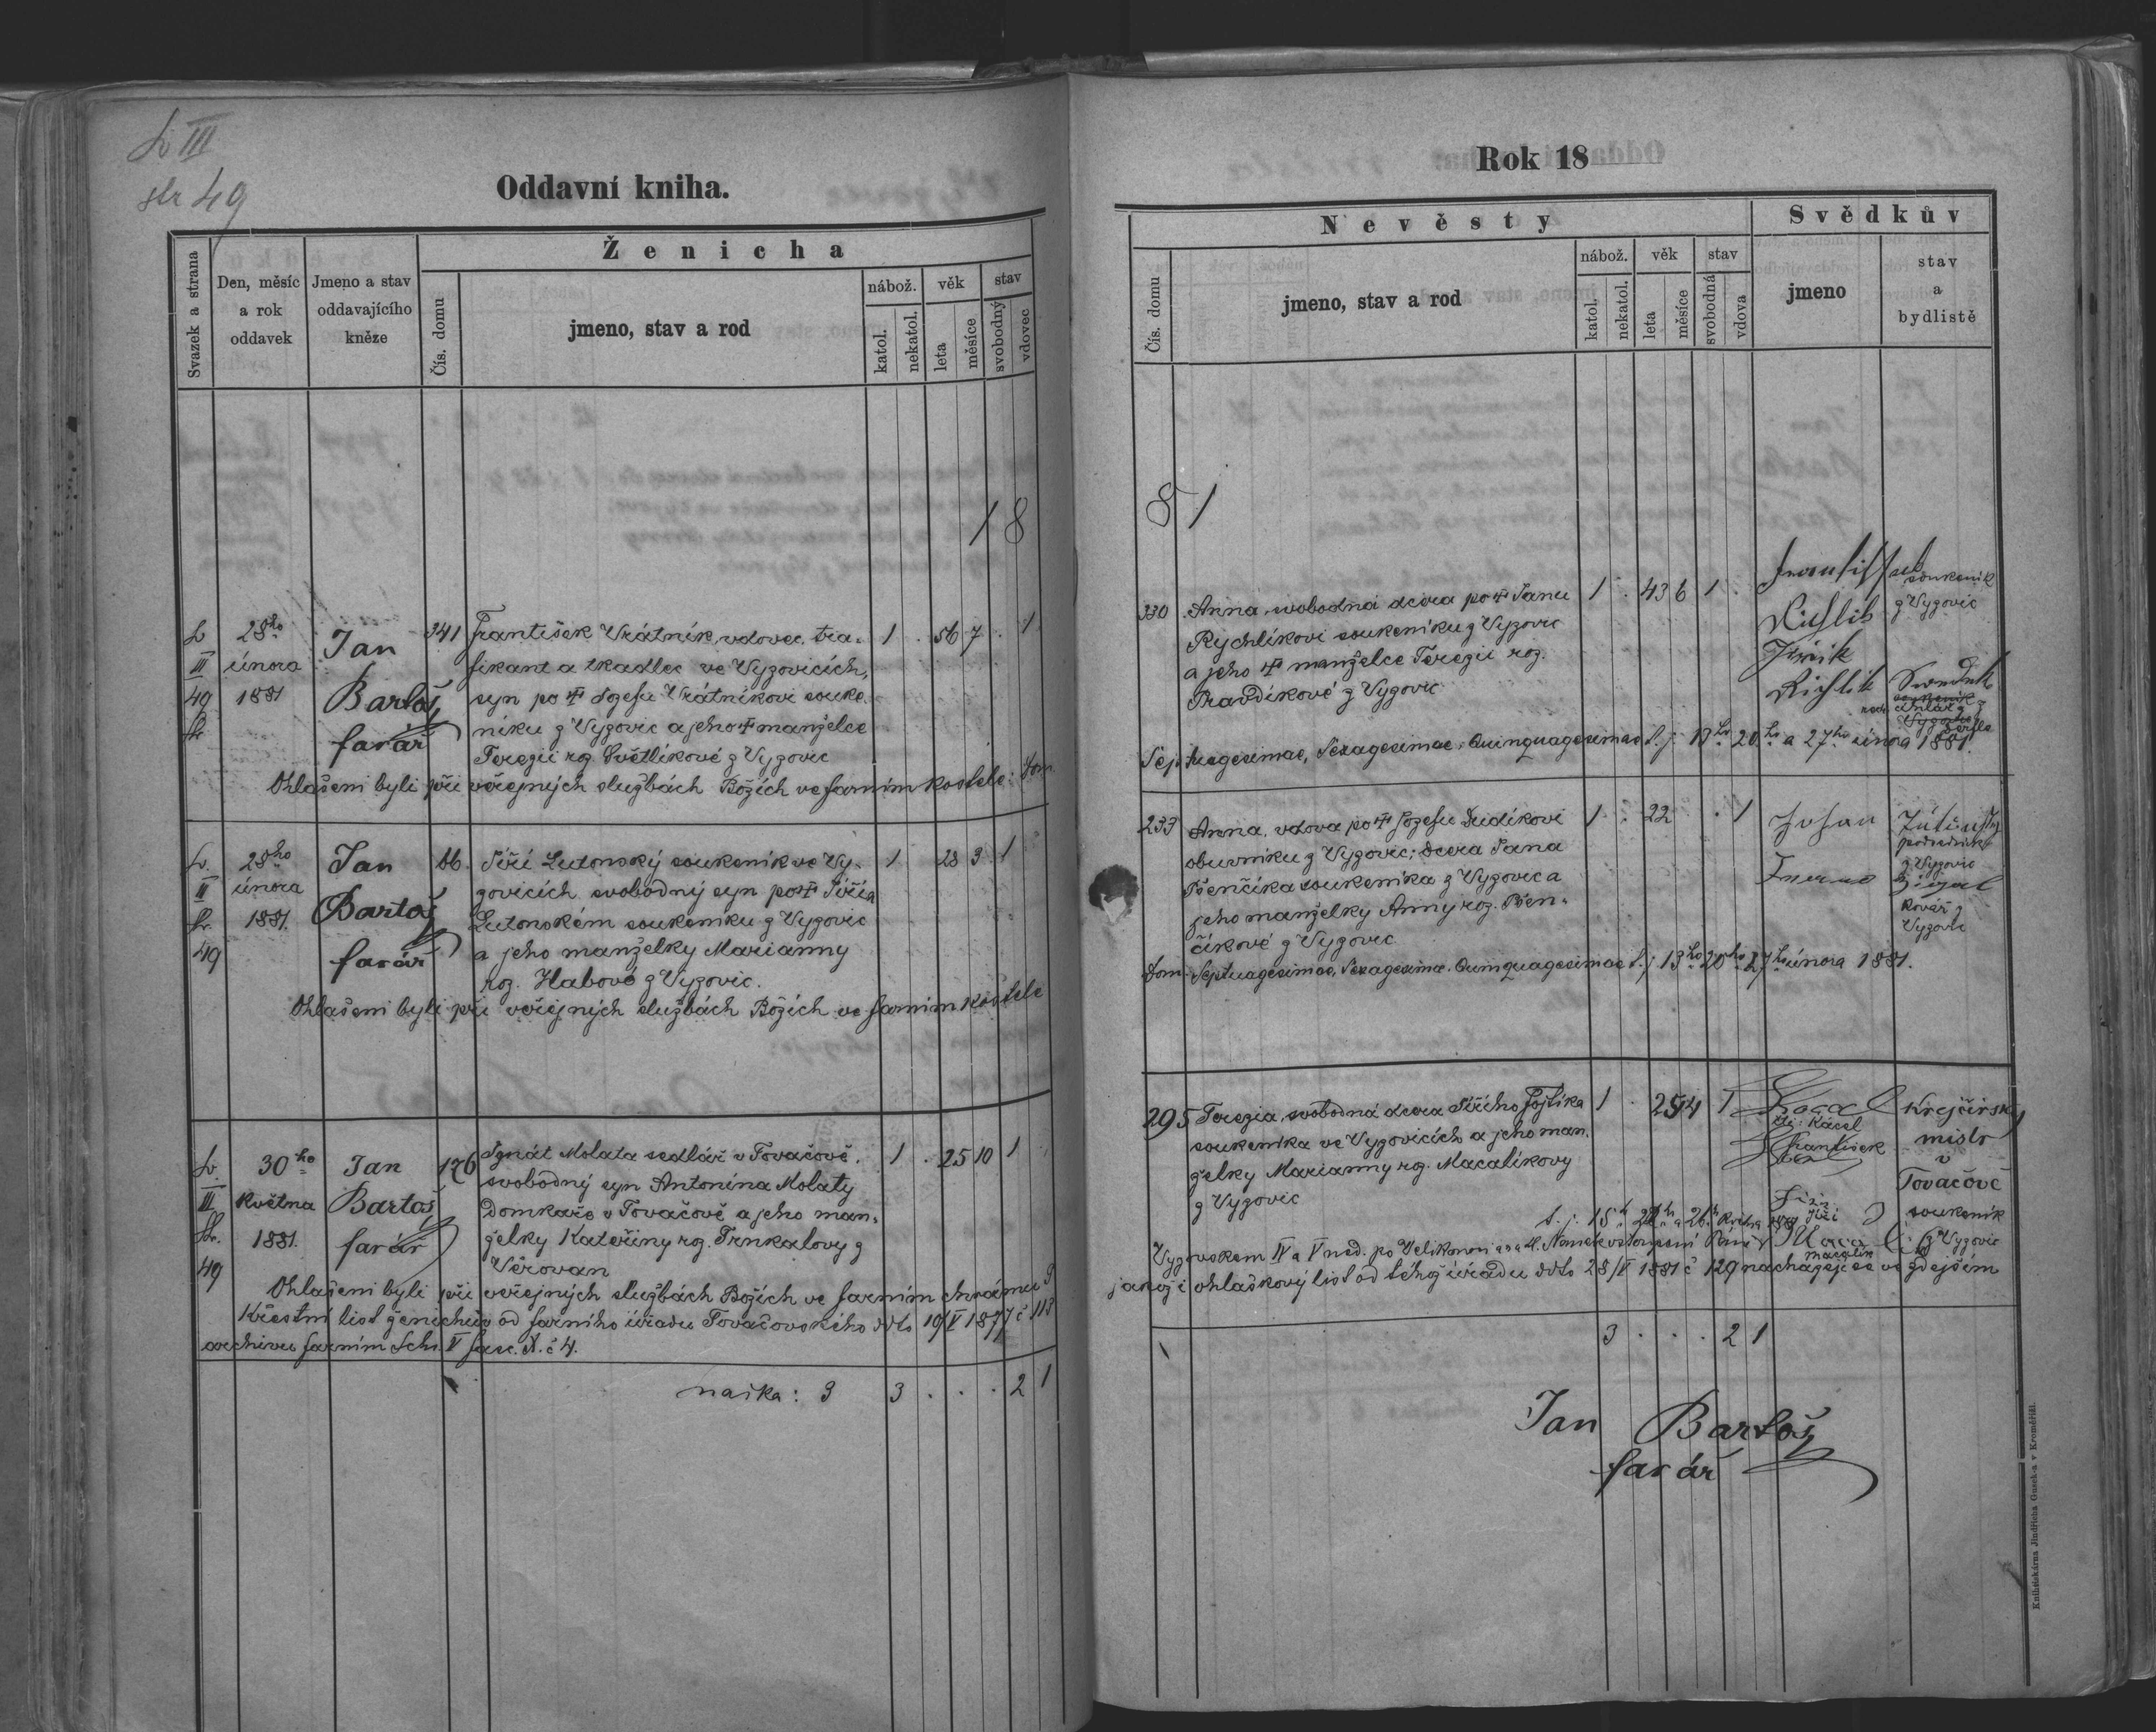 L III
str 49
Oddavní kniha.
Svazek a strana
Den, měsíc a rok oddavek
Jmeno a stav oddavajícího kněze
Ženicha
Čís. domu
jmeno, stav a rod
nábož.
katol.
nekatol.
věk
leta
měsíce
stav
svobodný
vdovec
18
L III 49 str
28ho února 1881
Jan Bartoš farář
341
František Vrátník, vdovec, tra-
fikant a tkadlec ve Vyzovicích,
syn po † Jozefu Vrátníkovi souke-
níku z Vyzovic a jeho † manželce
Terezii roz. Světlíkové z Vyzovic
1 . 56 7 . 1
Ohlašeni byli při veřejných službách Božích ve farním kostele: Dom.
L. II Str. 49
28ho února 1881.
Jan Bartoš farář
66.
Jiří Lutonský soukeník ve Vy-
zovicích svobodný syn po † Jiřím
Lutonském soukeníku z Vyzovic
a jeho manželky Marianny
roz. Habové z Vyzovic.
1 28 3 1
Ohlašeni byli při veřejných službách Božích ve farním kostele
L. III Str. 49
30ho května 1881.
Jan Bartoš farář
176
Ignát Molata sedlář v Tovačově,
svobodný syn Antonína Molaty
domkaře v Tovačově a jeho man-
želky Kateřiny roz. Trnkalovy z
Věrovan
1 . 25 10 1
Ohlašeni byli při veřejných službách Božích ve farním chrámu
Křestní list ženichův od farního úřadu Tovačovského ddto 19/V 1877 č 113
archivu farním Sch. V fasc. X. č 4.
naska: 3 3 . . . 2 1
Rok 18
Nevěsty
Čís. domu
jmeno, stav a rod
nábož.
katol.
nekatol.
věk
leta
měsíce
stav
svobodná
vdova
Svědkův
jmeno
stav a bydlistě
81
330
Anna, svobodná dcera po † Janu
Rychlíkovi soukeníku z Vyzovic
a jeho † manželce Terezii roz.
Pravdíkové z Vyzovic
1 . 43 6 1 .
soukeník
z Vyzovic
Septuagesimae, Sexagesimae, Quinquagesimae t. j. 13ho 20ho a 27ho února 1881.
233
Anna, vdova po † Jozefu Dudíkovi
obuvníku z Vyzovic; dcera Jana
Pšenčíka soukeníka z Vyzovic a
jeho manželky Anny roz. Pšen-
číkové z Vyzovic
1 . 22 . 1
Johan
z Vyzovic
kovář z
Vyzovic
Dom. Septuagesimae, Sexagesimae, Quinquagesimae t. j. 13ho 20ho 27ho února 1881.
295
Terezia svobodná dcera Jiřího Fojtíka
soukeníka ve Vyzovicích a jeho man-
želky Marianny roz. Macalíkovy
z Vyzovic
1 . 25 4 1
František
Krejčírský
mistr
v
Tovačově
Jiří
Macalík
soukeník
z Vyzovic
Vyzovskem IV a V ned. po Velikonoci a na tl. Nanebevstoupení Páně
jakož i ohlaškový list od téhož úřadu ddto 28/V 1881 č 129 nacházejí se ve zdejším
3 . . . 2 1
Jan Bartoš
farář
Knihtiskárna Jindřicha Gusek-a v Kroměříži.